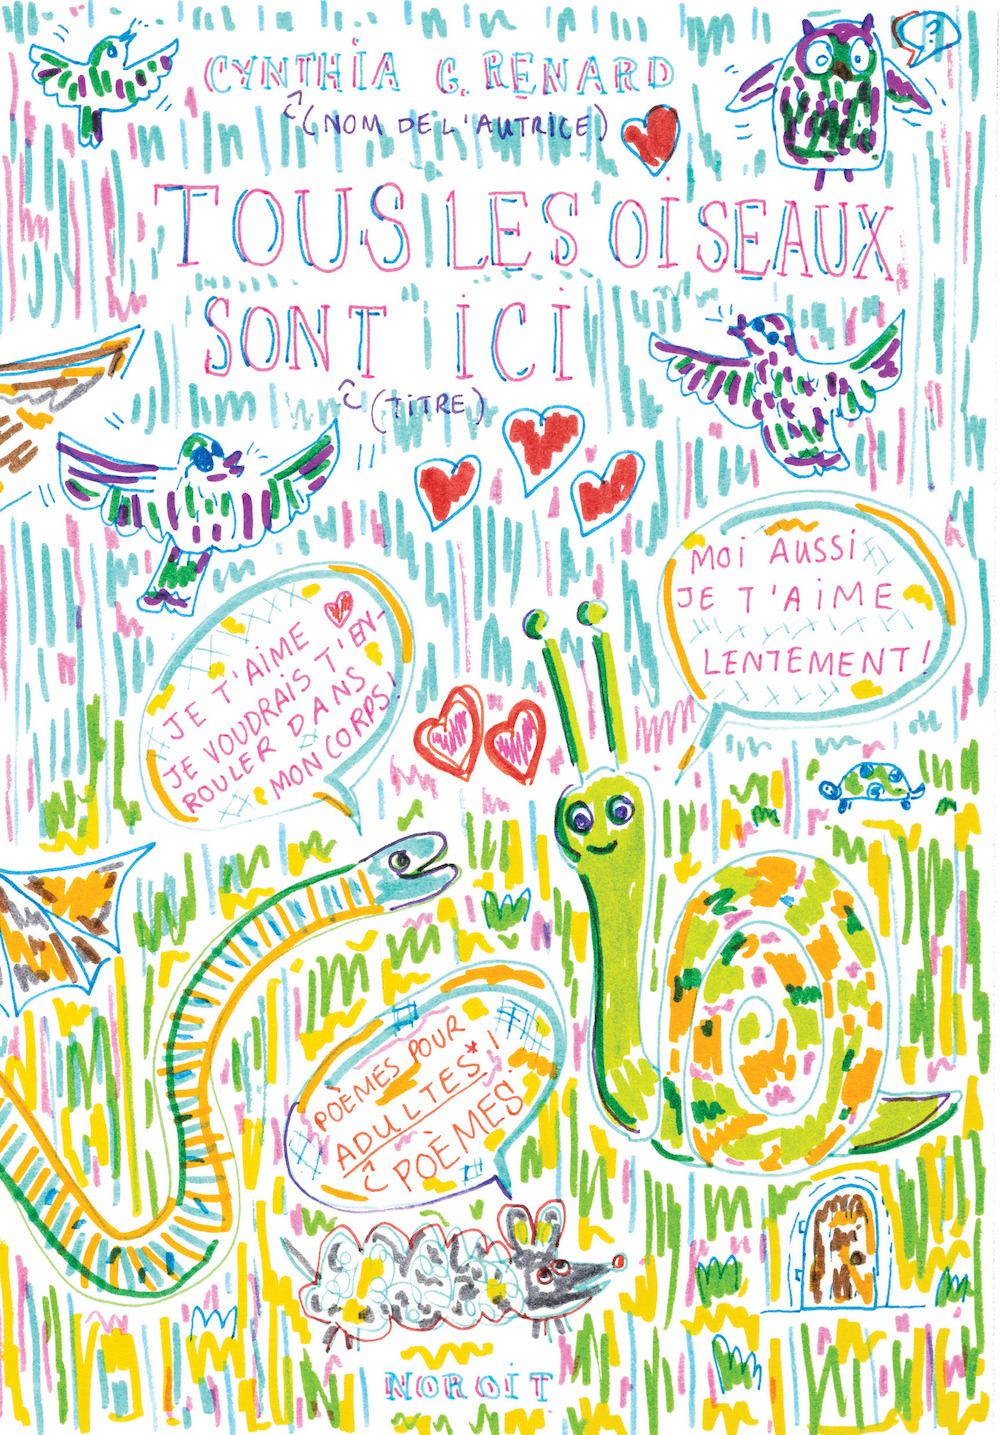 CYNTHIA G. RENARD
(NOM DE L'AUTRICE)
?
TOUS LES OISEAUX
SONT ICI
(TITRE)
MOI AUSSI
JE T'AIME
LENTEMENT!
JE T'AIME
JE VOUDRAIS T'EN-
ROULER DANS
MON CORPS!
POÈMES POUR
ADULTES*!
POÈMES
NOROIT